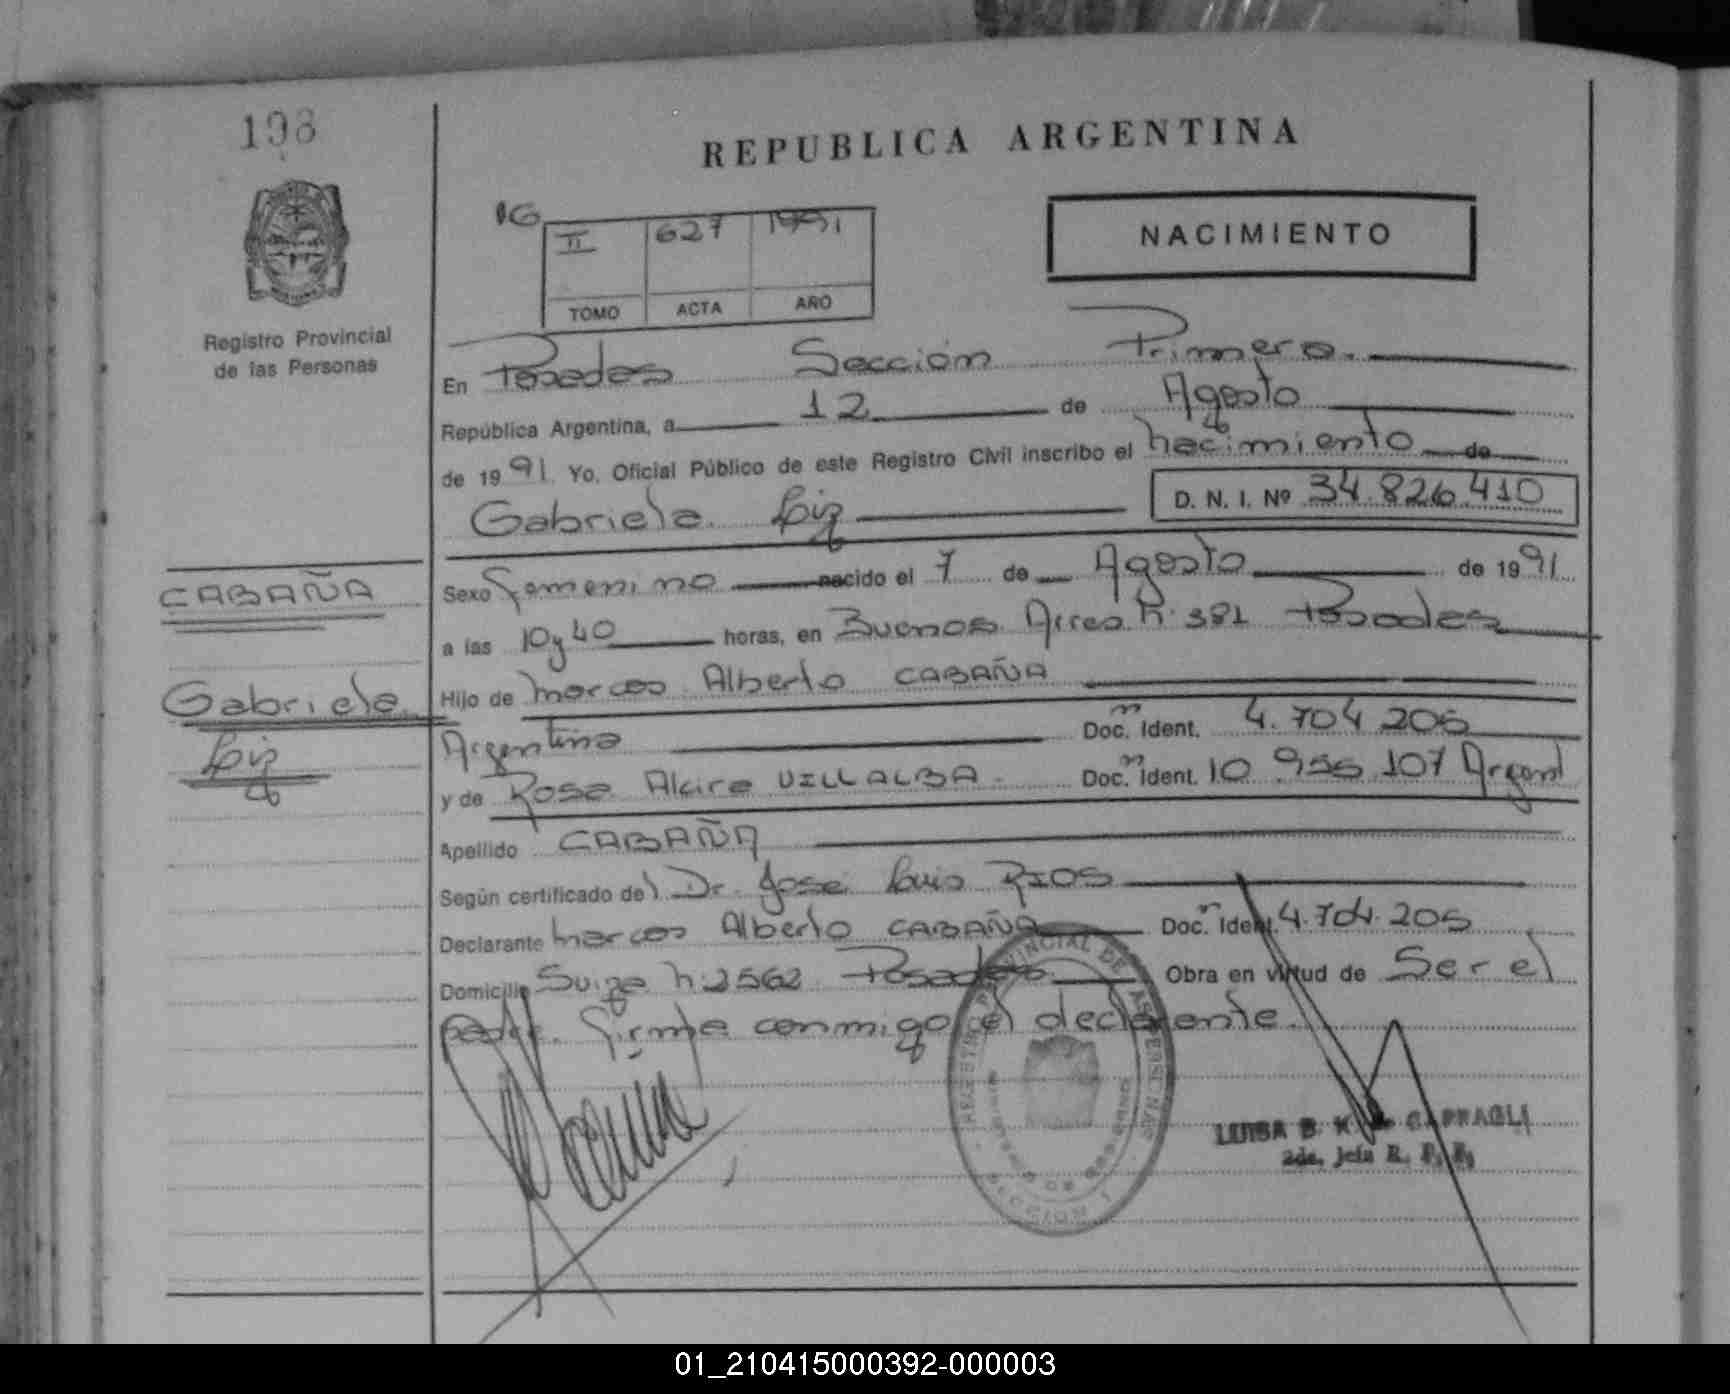 198
REPUBLICA ARGENTINA
NACIMIENTO
II 627 1991
TOMO ACTA AÑO
Registro Provincial
de las Personas
En Posadas Sección Primera.
República Argentina, a 12 de Agosto
de 1991. Yo, Oficial Público de este Registro Civil inscribo el nacimiento de
Gabriela Liz D. N. I. Nº 34.826.410
CABAÑA
Gabriela
Liz
Sexo femenino nacido el 7 de Agosto de 1991
a las 10 y 40 horas, en Buenos Aires n: 381 Posadas
Hijo de Marcos Alberto CABAÑA
Argentina Doc.m Ident. 4.704.205
y de Rosa Alcira VILLALBA Doc.m Ident. 10.955.107 Argent
Apellido CABAÑA
Según certificado del Dr. José Luis RIOS
Declarante Marcos Alberto CABAÑA Doc.m Ident. 4.704.205
Domicilio Suiza n: 2562 Posadas Obra en virtud de Ser el
padre. firma conmigo el declarente.
REGISTRO PROVINCIAL DE LAS PERSONAS
MINISTERIO DE GOBIERNO
SECCION 1
LUISA B. K. de
R. P. P.
01_210415000392-000003